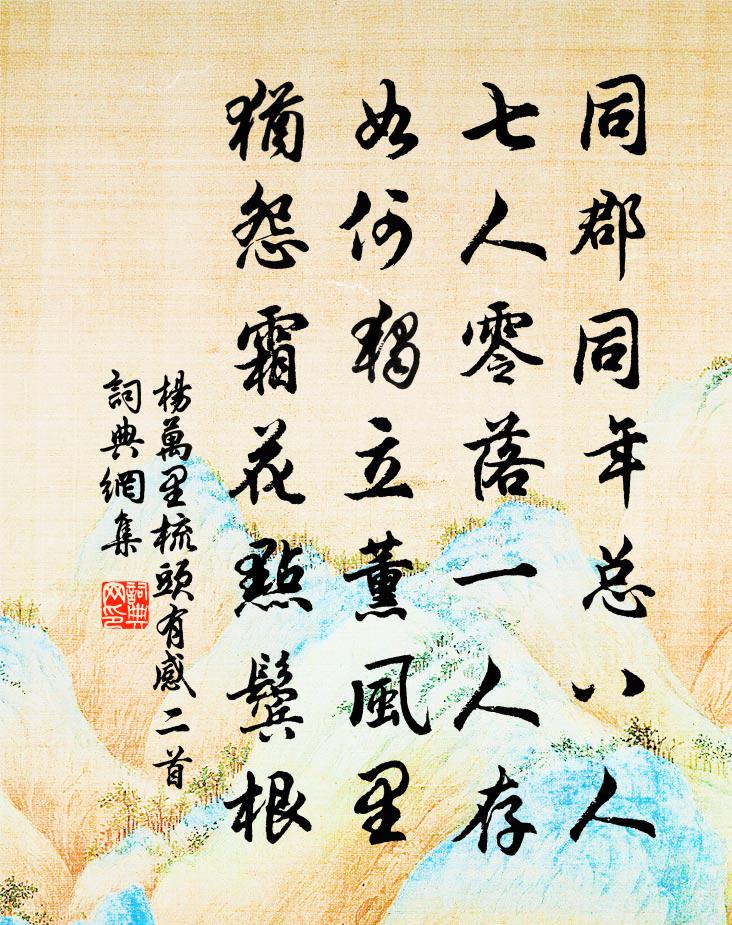 同郡同年总八人
七人零落一人存
如何独立薰風里
猶怨霜花點鬢根
楊萬里梳頭有感二首
詞典網集
詞典网印